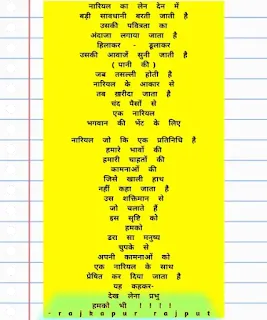 नारियल का लेन देन में
बड़ी सावधानी बरती जाती है
उसकी पवित्रता का
अंदाजा लगाया जाता है
हिलाकर - डूलाकर
उसकी आवाजें सुनी जाती है
( पानी की )
जब तसल्ली होती है
नारियल के आकार से
तब खरीदा जाता है
चंद पैसों से
एक नारियल
भगवान की भेंट के लिए
नारियल जो कि एक प्रतिनिधि है
हमारे भावों की
हमारी चाहतों की
कामनाओं की
जिसे खाली हाथ
नहीं कहा जाता है
उस शक्तिमान से
जो चलाते हैं
इस सृष्टि को
हमको
डरा सा मनुष्य
चुपके से
अपनी कामनाओं को
एक नारियल के साथ
प्रेषित कर दिया जाता है
यह कहकर-
देख लेना प्रभु
हमको भी ! ! ! !
- r a j h a p u r r a j p u t